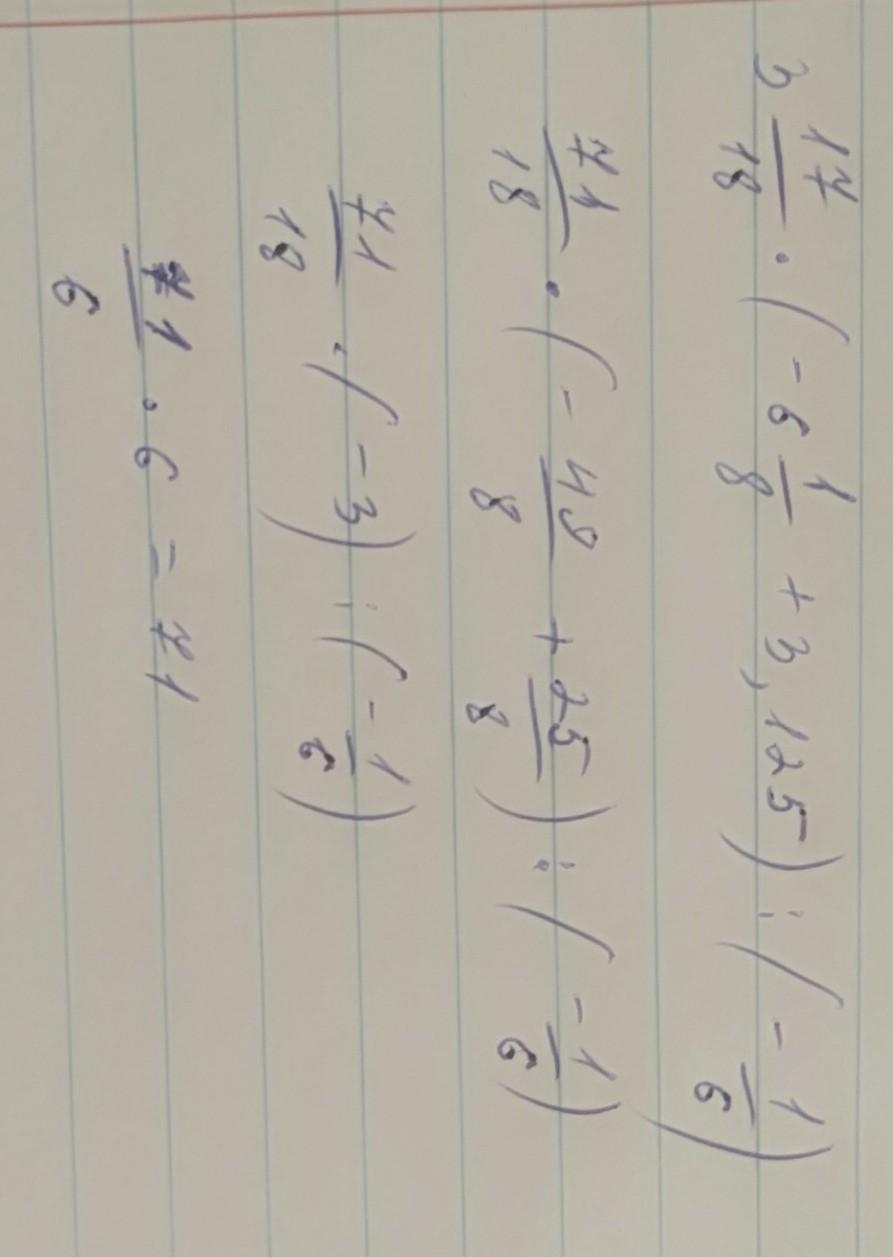 3 17/18 · (-6 1/8 + 3,125) : (-1/6)
71/18 · (-49/8 + 25/8) : (-1/6)
71/18 · (-3) : (-1/6)
71/6 · 6 = 71